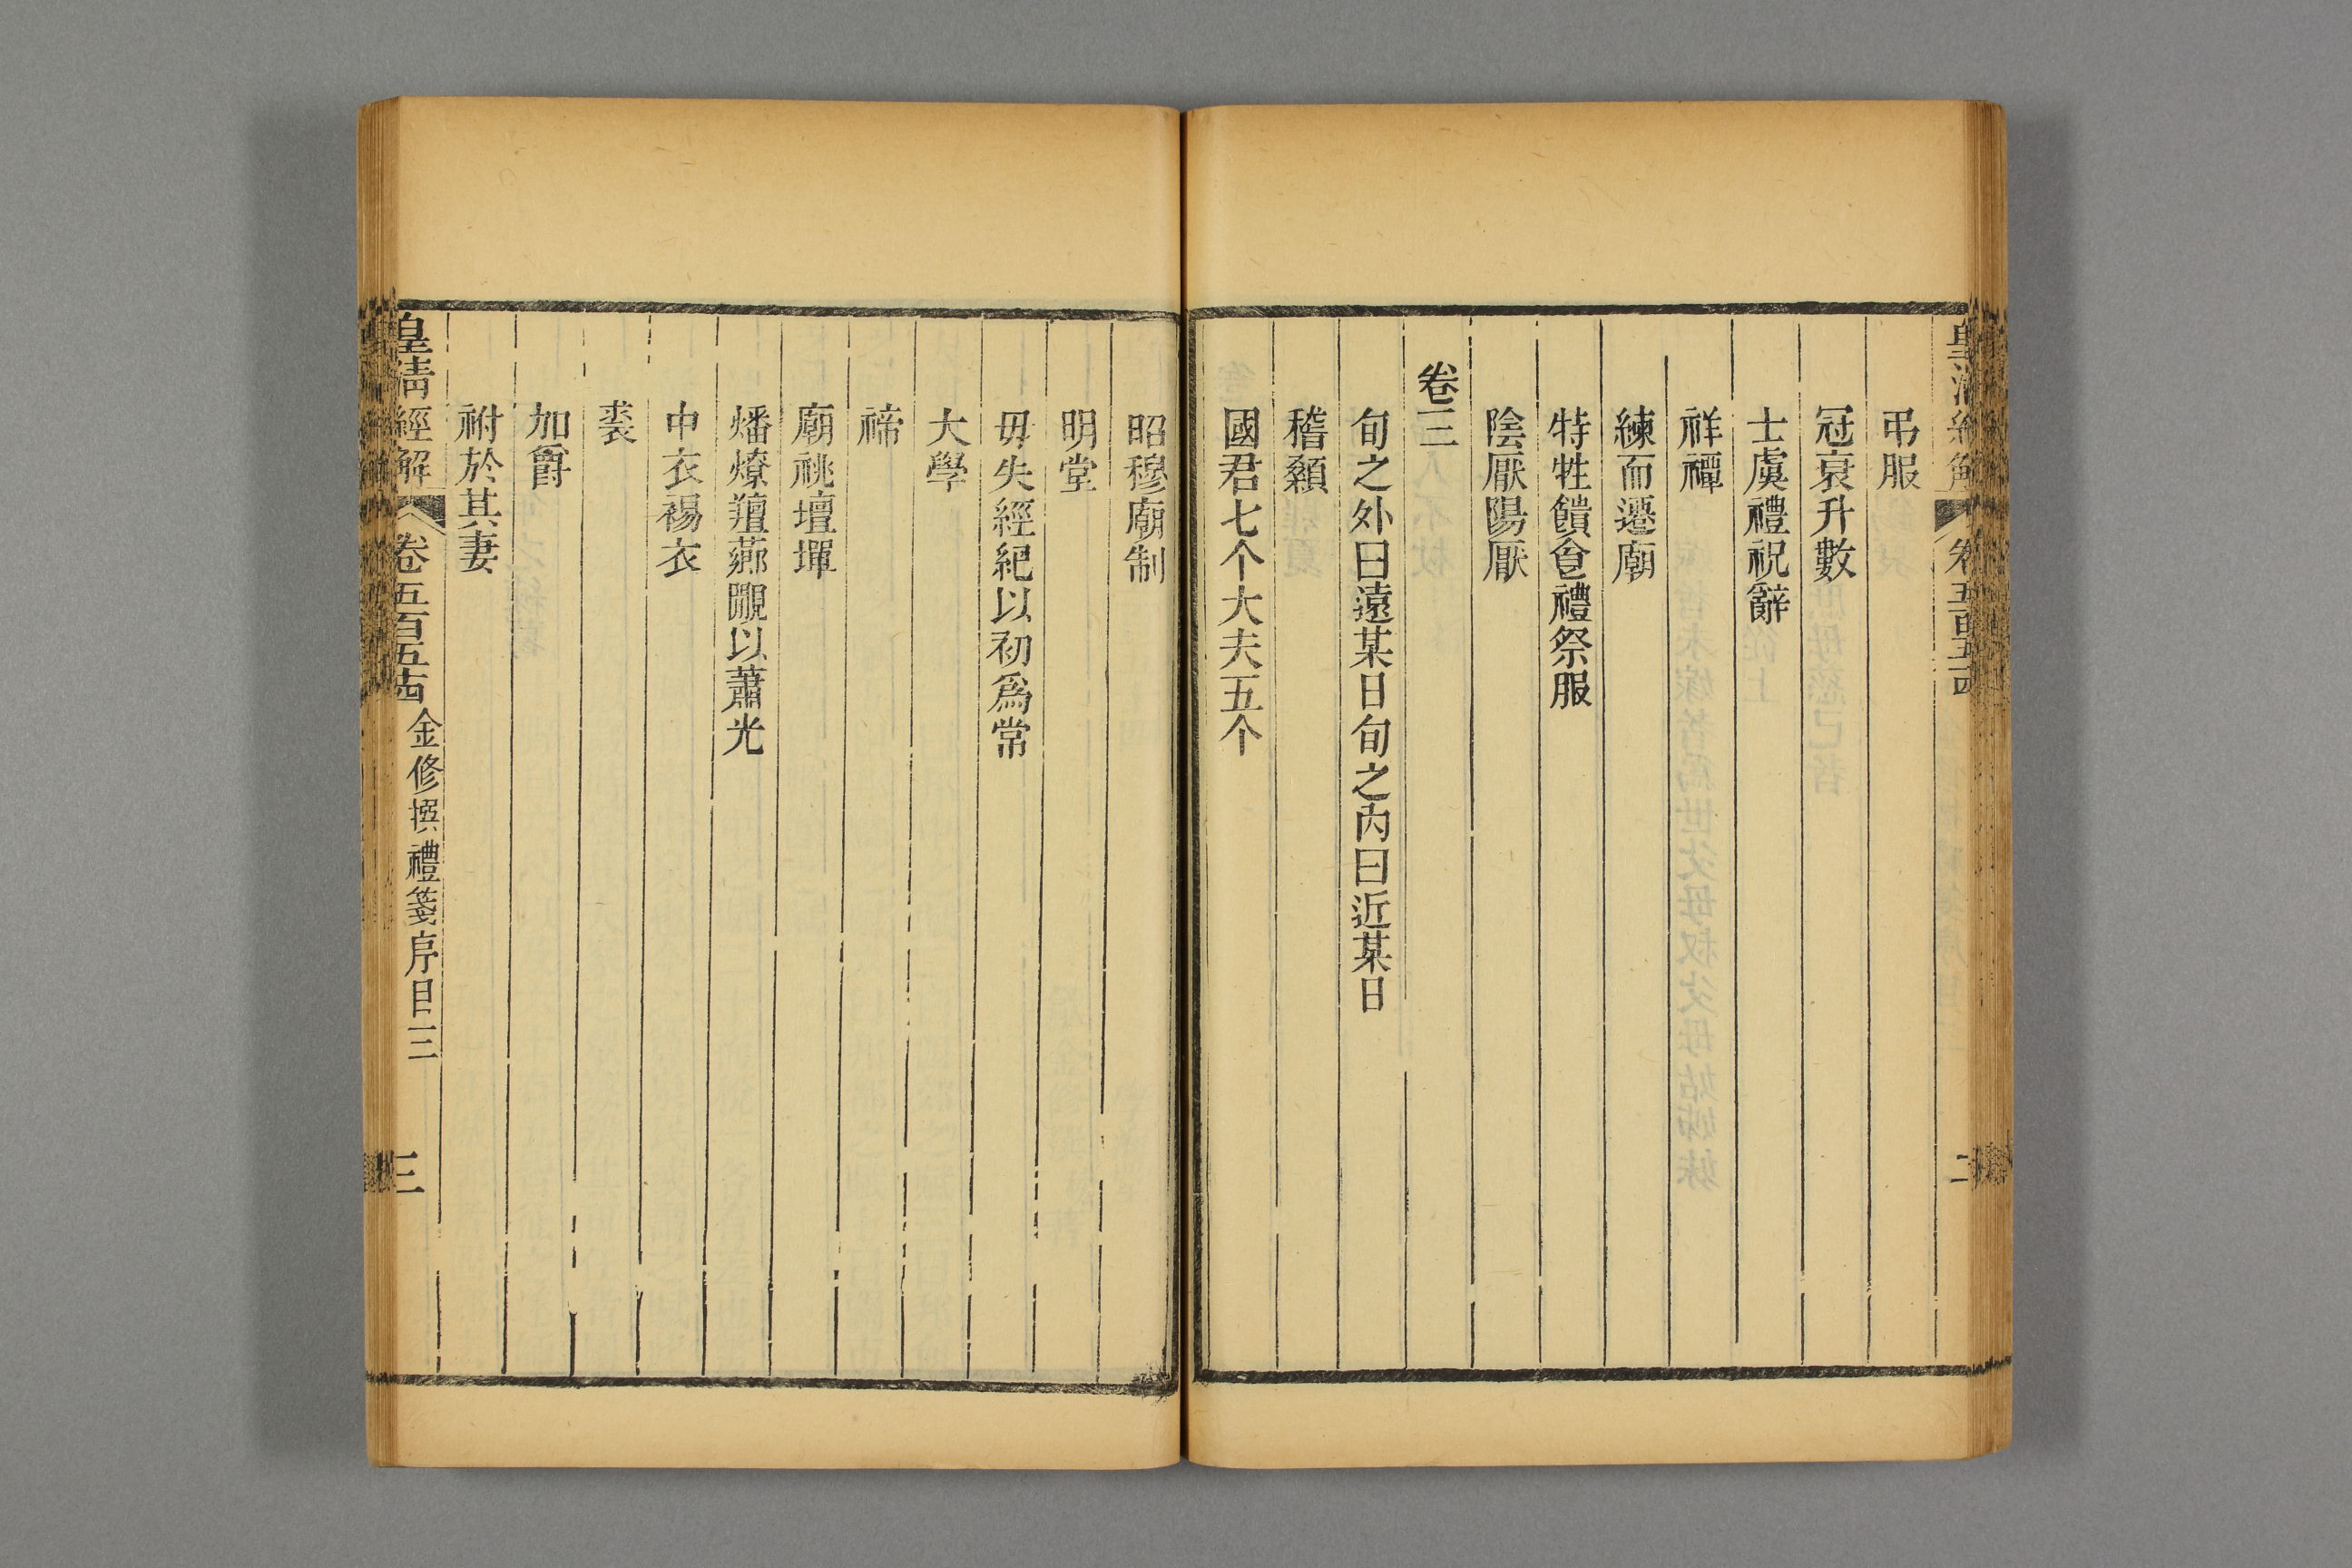 皇清經解 卷五百五十四 二
弔服
冠衰升數
士虞禮祝辭
祥禫
練而遷廟
特牲饋食禮祭服
陰厭陽厭
卷三
旬之外曰遠某日旬之內曰近某日
稽顙
國君七个大夫五个
昭穆廟制
明堂
毋失經紀以初爲常
大學
禘
廟祧壇墠
燔燎羶薌覵以蕭光
中衣裼衣
裘
加爵
祔於其妻
皇清經解 卷五百五十四 金修撰禮箋序目三 三